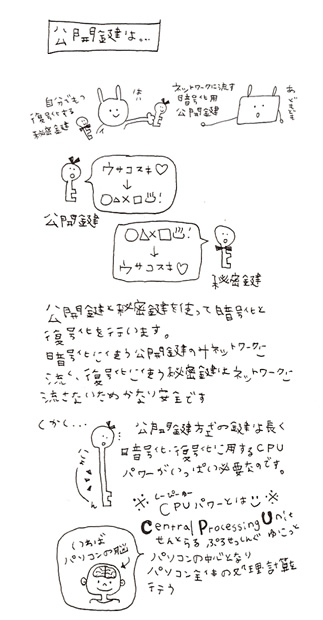 公開鍵は…
自分がもつ
復号化する
秘密鍵
はい
ネットワークに流す
暗号化用
公開鍵
あどもども
ウサコスキ♡
↓
○△×□♨!
公開鍵
○△×□♨!
↓
ウサコスキ♡
秘密鍵
公開鍵と秘密鍵を使って暗号化と
復号化を行います。
暗号化に使う公開鍵のみネットワークに
流し、復号化に使う秘密鍵はネットワークに
流さないためかなり安全です
しかし…
公開鍵方式の鍵は長く
暗号化・復号化に用するCPU
パワーがいっぱい必要なのです。
※ CPUパワーとは ※
シーピーユー
Central Processing Unit
せんとらる ぷろせっしんぐ ゆにっと
パソコンの中心となり
パソコン全体の処理計算
行う
いわば
パソコンの脳